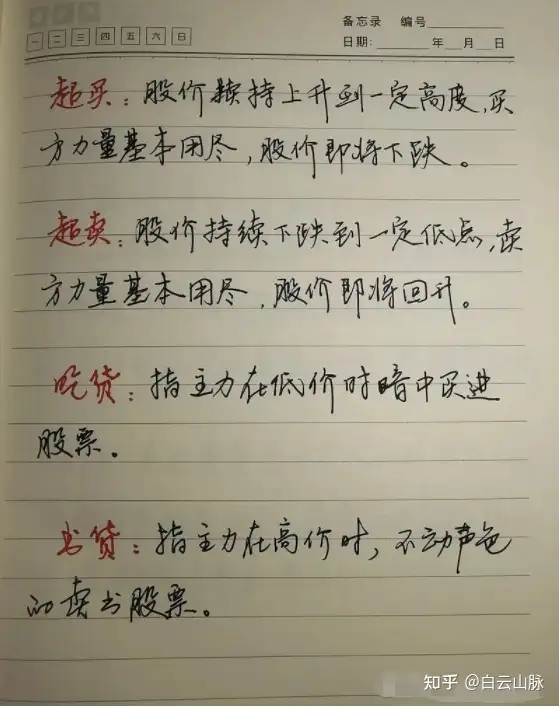 备忘录 编号
一 二 三 四 五 六 日
日期: 年 月 日
超买：股价续持上升到一定高度,买
方力量基本用尽，股价即将下跌。
超卖：股价持续下跌到一定低点,卖
方力量基本用尽，股价即将回升。
吃货：指主力在低价时暗中买进
股票。
出货：指主力在高价时，不动声色
的卖出股票。
知乎 @白云山脉